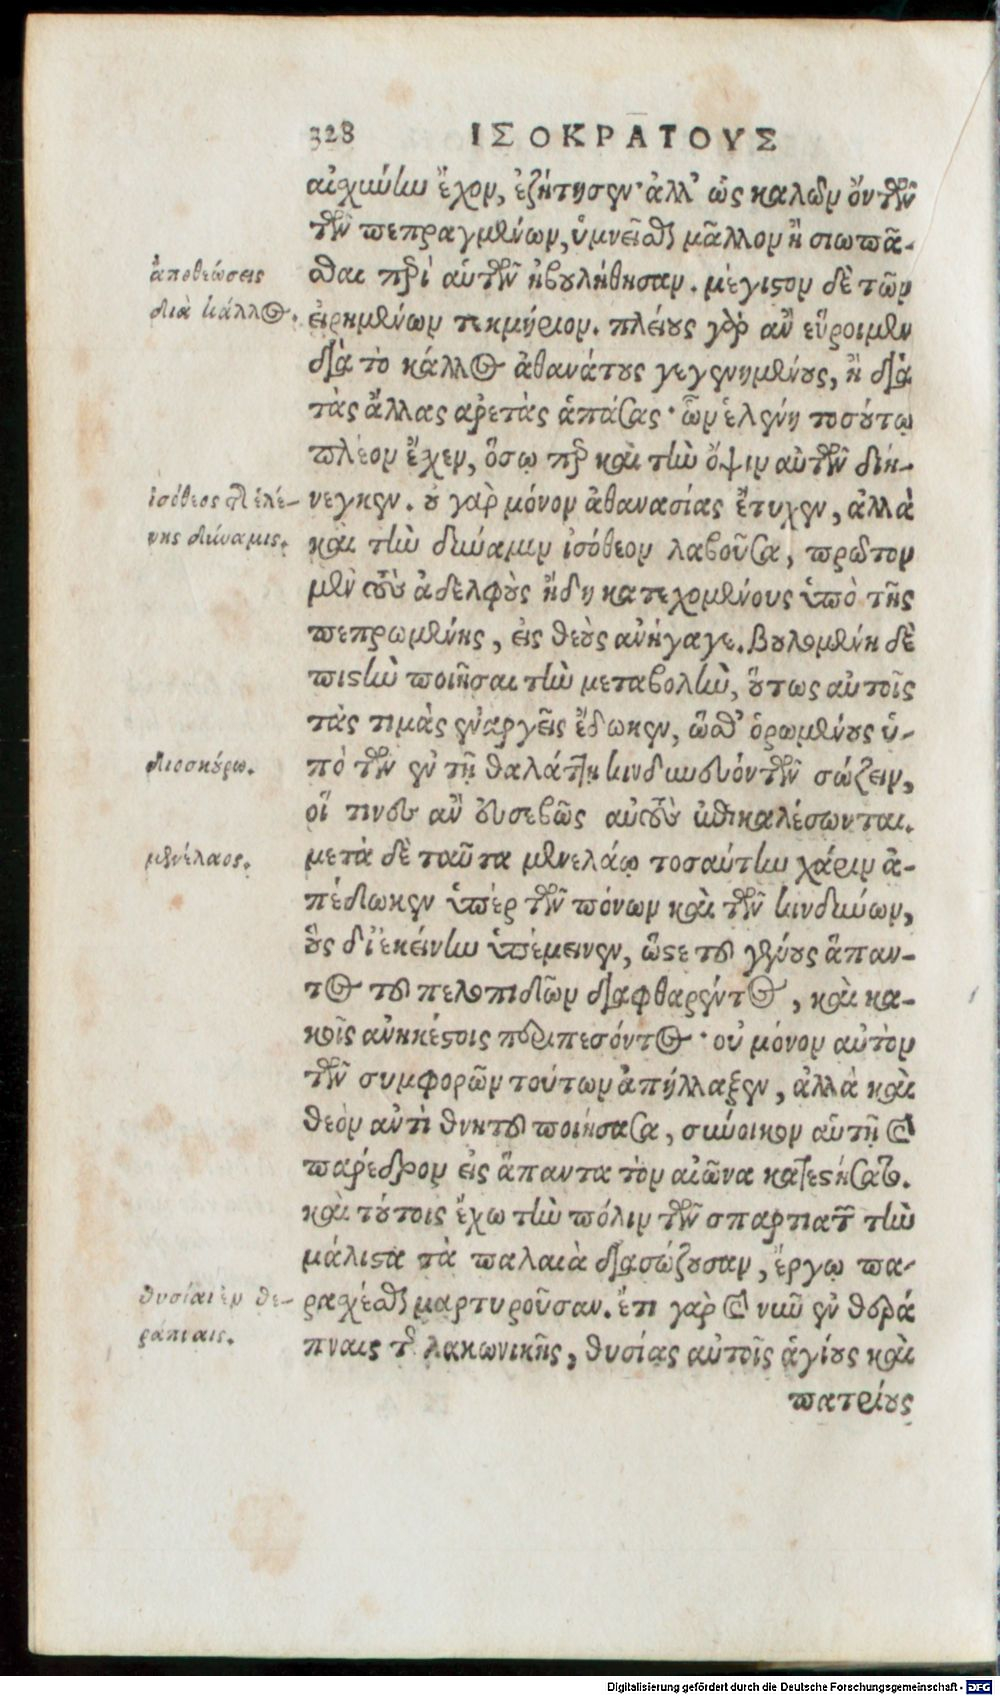 328 ΙΣΟΚΡΑΤΟΥΣ
αἰχύνην ἔχον, ἐζήτησεν· ἀλλ᾽ ὡς καλῶν ὄντων
τῶν πεπραγμένων, ὑμνεῖσθαι μᾶλλον ἢ σιωπᾶ-
σθαι περὶ αὑτῶν ἠβουλήθησαν. μέγιστον δὲ τῶν
εἰρημένων τεκμήριον. πλείους γὰρ ἂν εὕροιμεν
διὰ τὸ κάλλος ἀθανάτους γεγενημένους, ἢ διὰ
τὰς ἄλλας ἀρετὰς ἁπάσας· ὧν ἑλένη τοσούτῳ
πλέον ἔχεν, ὅσῳ περ καὶ τὴν ὄψιν αὐτῶν διή-
νεγκεν. οὐ γὰρ μόνον ἀθανασίας ἔτυχεν, ἀλλὰ
καὶ τὴν δύναμιν ἰσόθεον λαβοῦσα, πρῶτον
μὲν τοὺς ἀδελφοὺς ἤδη κατεχομένους ὑπὸ τῆς
πεπρωμένης, εἰς θεοὺς ἀνήγαγε. βουλομένη δὲ
πιστὴν ποιῆσαι τὴν μεταβολὴν, οὕτως αὐτοῖς
τὰς τιμὰς ἐναργεῖς ἔδωκεν, ὥσθ᾽ ὁρωμένους ὑ-
πὸ τῶν ἐν τῇ θαλάττῃ κινδυνευόντων σώζειν,
οἵ τινες ἂν εὐσεβῶς αὐτοὺς ἐπικαλέσωνται.
μετὰ δὲ ταῦτα μενελάῳ τοσαύτην χάριν ἀ-
πέδωκεν ὑπὲρ τῶν πόνων καὶ τῶν κινδύνων,
οὓς δι᾽ ἐκείνην ὑπέμεινεν, ὥστε τοῦ γένους ἅπαν-
τος τοῦ πελοπιδῶν διαφθαρέντος, καὶ κα-
κοῖς ἀνηκέστοις περιπεσόντος· οὐ μόνον αὐτὸν
τῶν συμφορῶν τούτων ἀπήλλαξεν, ἀλλὰ καὶ
θεὸν ἀντὶ θνητοῦ ποιήσασα, σύνοικον αὑτῇ καὶ
πάρεδρον εἰς ἅπαντα τὸν αἰῶνα κατεστήσατο.
καὶ τούτοις ἔχω τὴν πόλιν τῶν σπαρτιατῶν τὴν
μάλιστα τὰ παλαιὰ διασώζουσαν, ἔργῳ πα-
ραχέσθαι μαρτυροῦσαν. ἔτι γὰρ καὶ νῦν ἐν θερά
πναις τῆς λακωνικῆς, θυσίας αὐτοῖς ἁγίους καὶ
πατρίους
ἀποθεώσεις
διὰ κάλλος.
ἰσόθεος τῆς ἑλέ-
νης δύναμις.
διοσκούρω.
μενέλαος.
θυσίαι ἐν θε-
ράπναις.
Digitalisierung gefördert durch die Deutsche Forschungsgemeinschaft - DFG